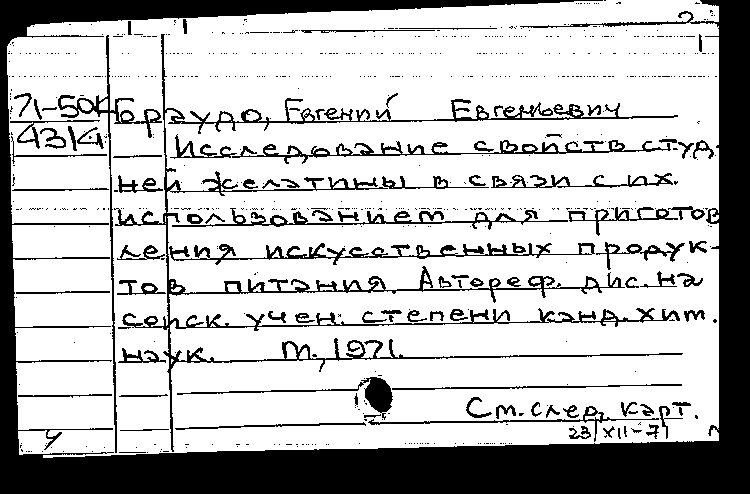 71-50к Браудо, Евгений Евгеньевич
4314 Исследование свойств студ-
ней желатины в связи с их
использованием для приготов
ления искусственных продук-
тов питания. Автореф. дис. на
соиск. учен. степени канд. хим.
наук. М., 1971.
См. след. карт.
23/XII-71